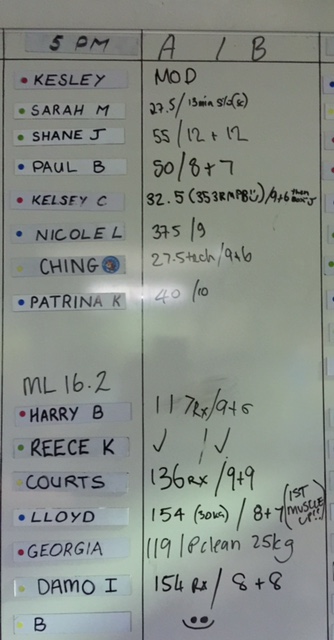 5 PM A / B
KESLEY MOD
SARAH M 27.5/13min
SHANE J 55/12 + 12
PAUL B 50/8+7
KELSEY C 32.5 (353RMPB)/9+6 then
NICOLE L 37.5 /9
CHING 27.5tech/9+6
PATRINA K 40 /10
ML 16.2
HARRY B 117Rx/9+6
REECE K ✓ / ✓
COURTS 136RX /9+9
LLOYD 154 (30kg) / 8+7 (1ST MUSCLE UP!!)
GEORGIA 119 / Pclean 25kg
DAMO I 154 RX / 8 + 8
B